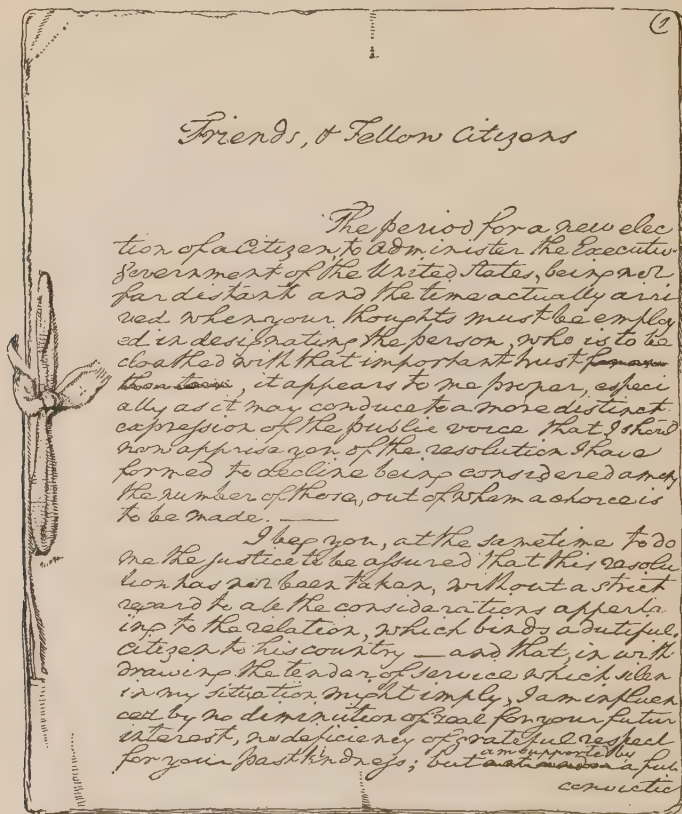 1
Friends, & Fellow Citizens
The period for a new elec
tion of a Citizen, to administer the Executiv
government of the United States, being not
far distant and the time actually arri
ved when your thoughts must be employ
ed in designating the person, who is to be
cloathed with that important trust
, it appears to me proper, especi
ally as it may conduce to a more distinct
expression of the public voice that I should
now apprise you of the resolution I have
formed to decline being considered among
the number of those, out of whom a choice is
to be made. —
I beg you, at the same time to do
me the justice to be assured that this resolu
tion has not been taken, without a strict
regard to all the considerations apperta
ing to the relation, which binds a dutiful
Citizen to his country — and that, in with
drawing the tender of service which silen
in my situation might imply, I am influen
ced by no diminution of zeal for your futur
interest, no deficiency of grateful respect
am supported by
for your past kindness; but a full
convictio